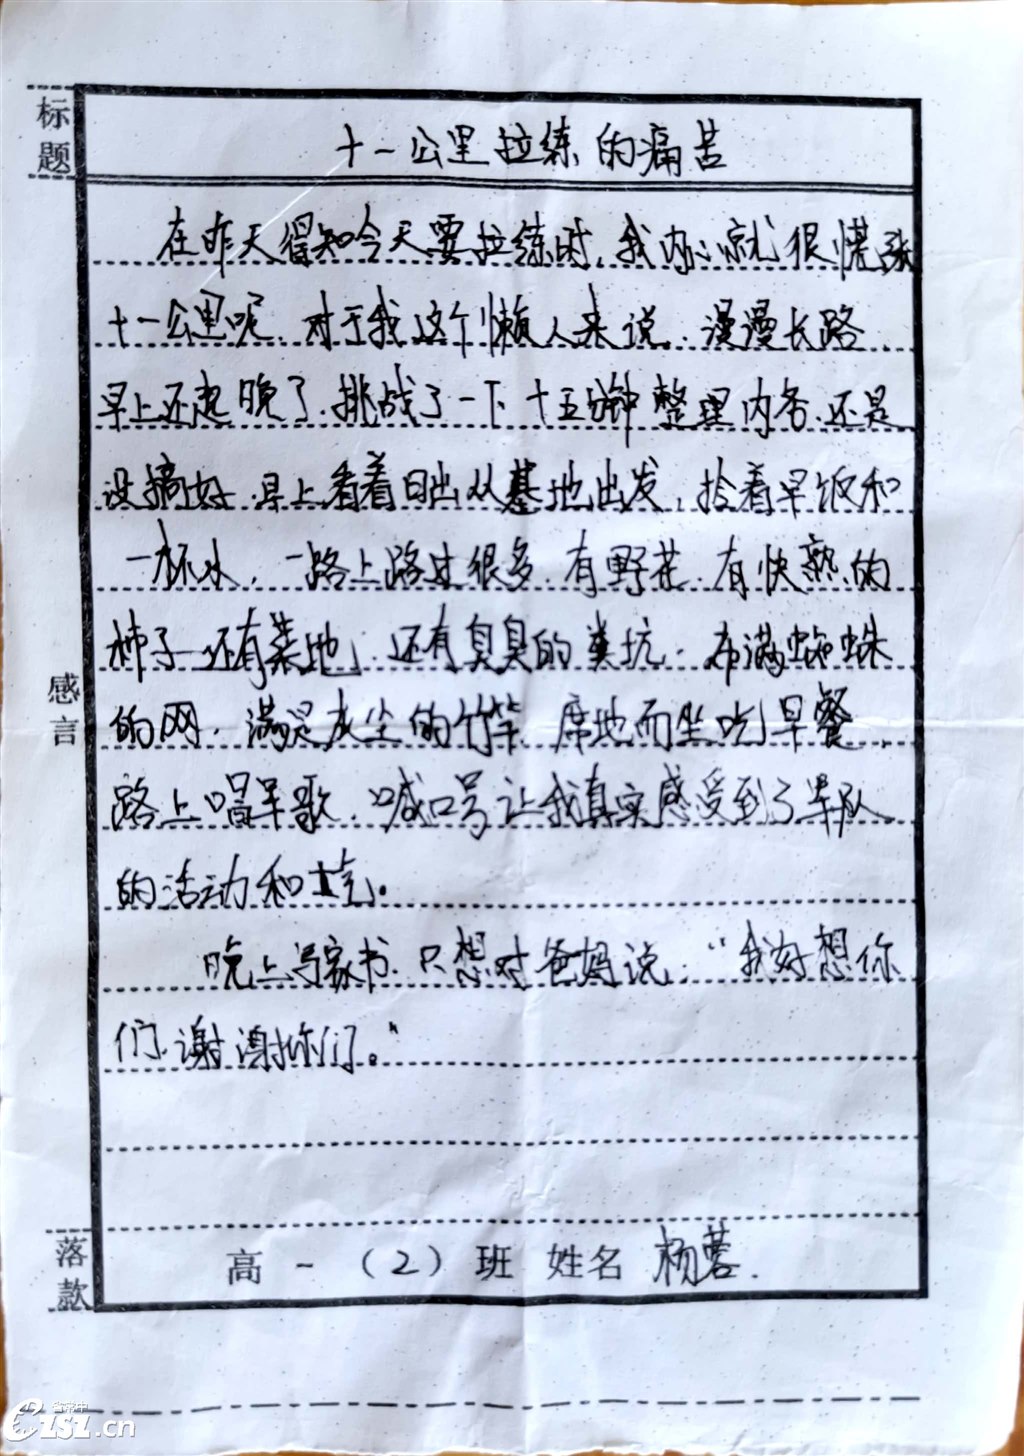 标题
十一公里拉练的痛苦
在昨天得知今天要拉练时,我内心就很慌张
十一公里呢,对于我这个懒人来说,漫漫长路,
早上还起晚了,挑战了一下十五分钟整理内务,还是
没搞好,早上看着日出从基地出发,拾着早饭和
一杯水,一路上路过很多,有野花,有快熟的
柿子,还有菜地,还有臭臭的粪坑,布满蜘蛛
的网,满是灰尘的竹竿,席地而坐吃早餐,
路上唱军歌,喊口号让我真实感受到了军队
的活动和士气。
感言
晚上写家书,只想对爸妈说,“我好想你
们,谢谢你们。”
落款
高一(2)班 姓名 杨蓉.
省常中
CZ1SZ.cn